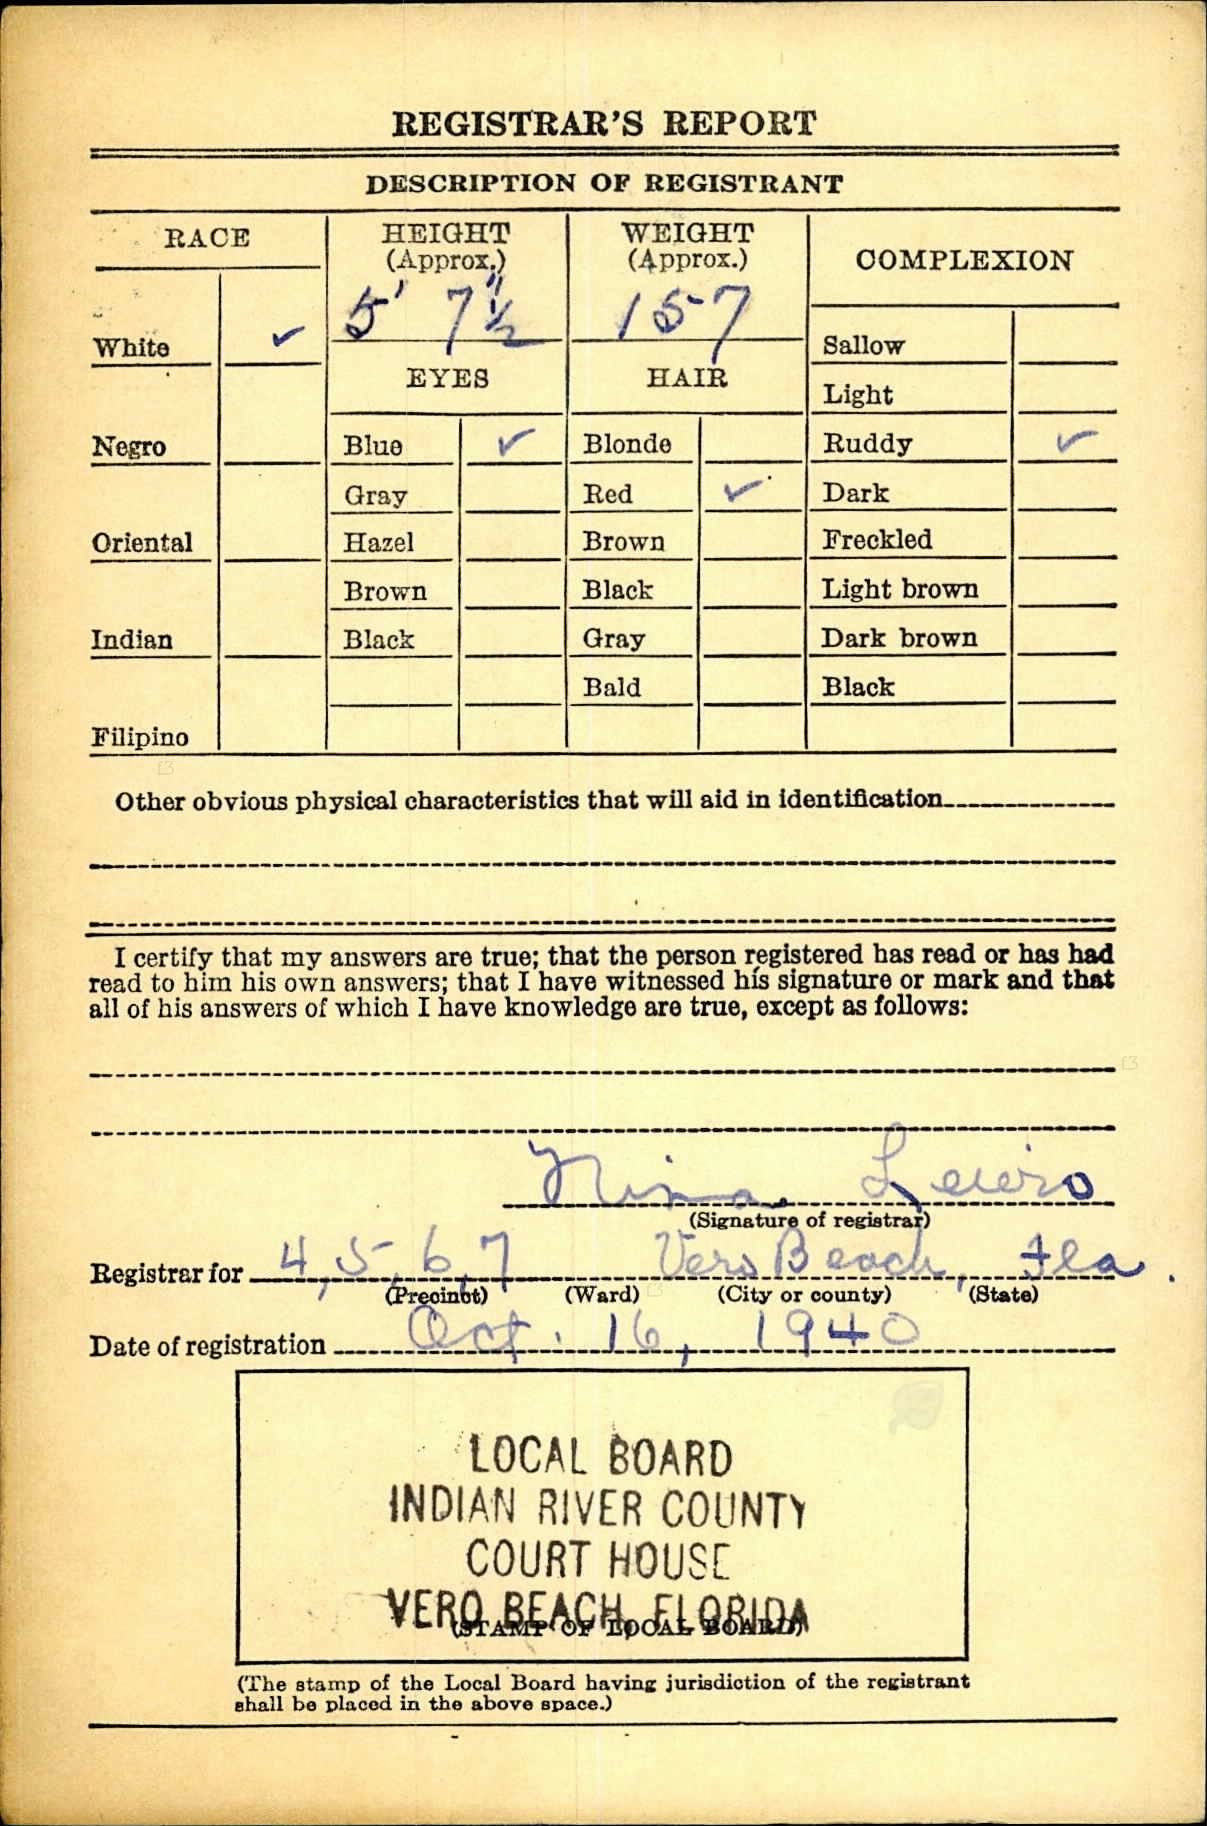 REGISTRAR'S REPORT
DESCRIPTION OF REGISTRANT
RACE
HEIGHT
(Approx.)
WEIGHT
(Approx.)
COMPLEXION
5' 7"½
157
White ✓
Sallow
EYES
HAIR
Light
Negro
Blue ✓
Blonde
Ruddy ✓
Gray
Red ✓
Dark
Oriental
Hazel
Brown
Freckled
Brown
Black
Light brown
Indian
Black
Gray
Dark brown
Bald
Black
Filipino
Other obvious physical characteristics that will aid in identification
I certify that my answers are true; that the person registered has read or has had
read to him his own answers; that I have witnessed his signature or mark and that
all of his answers of which I have knowledge are true, except as follows:
Nina Lewis
(Signature of registrar)
Registrar for 4, 5, 6, 7 Vero Beach, Fla.
(Precinct) (Ward) (City or county) (State)
Date of registration Oct. 16, 1940
LOCAL BOARD
INDIAN RIVER COUNTY
COURT HOUSE
VERO BEACH, FLORIDA
(STAMP OF LOCAL BOARD)
(The stamp of the Local Board having jurisdiction of the registrant
shall be placed in the above space.)